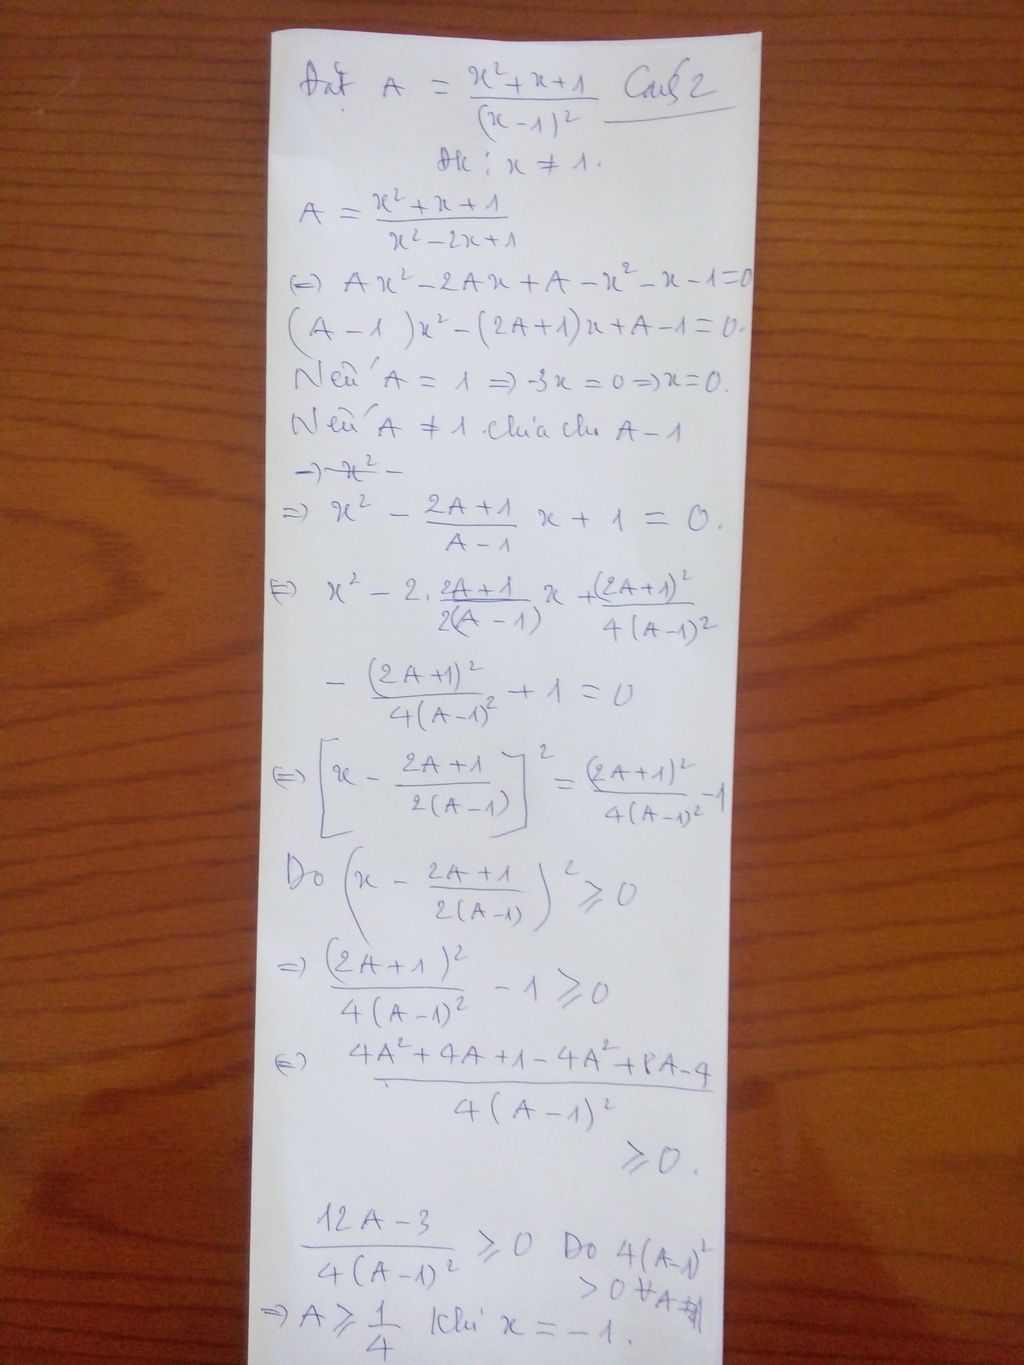 Đặt A = (x² + x + 1)/(x - 1)² Cách 2
ĐK: x ≠ 1.
A = (x² + x + 1)/(x² - 2x + 1)
⇔ Ax² - 2Ax + A - x² - x - 1 = 0
(A - 1)x² - (2A + 1)x + A - 1 = 0.
Nếu A = 1 ⇒ -3x = 0 ⇒ x = 0.
Nếu A ≠ 1 chia cho A - 1
→ x² -
⇒ x² - (2A + 1)/(A - 1) x + 1 = 0.
⇔ x² - 2. (2A + 1)/(2(A - 1)) x + (2A + 1)²/(4(A - 1)²)
- (2A + 1)²/(4(A - 1)²) + 1 = 0
⇔ [x - (2A + 1)/(2(A - 1))]² = (2A + 1)²/(4(A - 1)²) - 1
Do (x - (2A + 1)/(2(A - 1)))² ≥ 0
⇒ (2A + 1)²/(4(A - 1)²) - 1 ≥ 0
⇔ (4A² + 4A + 1 - 4A² + 8A - 4)/(4(A - 1)²)
≥ 0.
(12A - 3)/(4(A - 1)²) ≥ 0 Do 4(A - 1)²
> 0 ∀A ≠ 1
⇒ A ≥ 1/4 Khi x = -1.